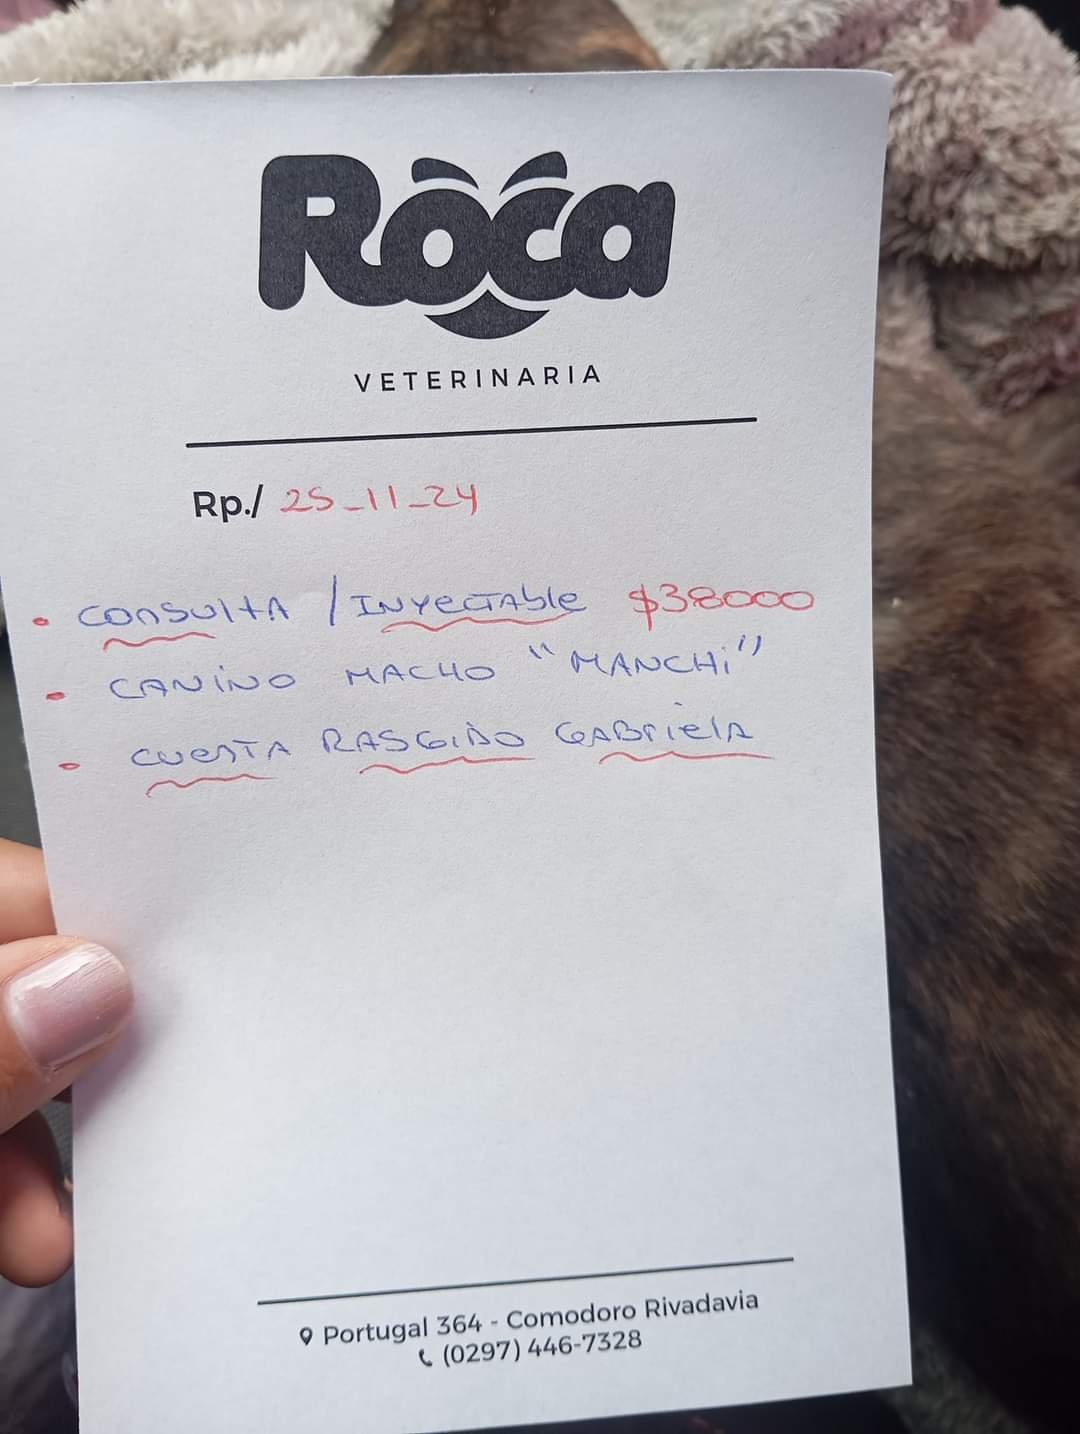 Roca
VETERINARIA
Rp./ 25-11-24
• CONSULTA / INYECTABLE $38000
• CANINO MACHO "MANCHI"
• CUENTA RASGIDO GABRIELA
Portugal 364 - Comodoro Rivadavia
(0297) 446-7328